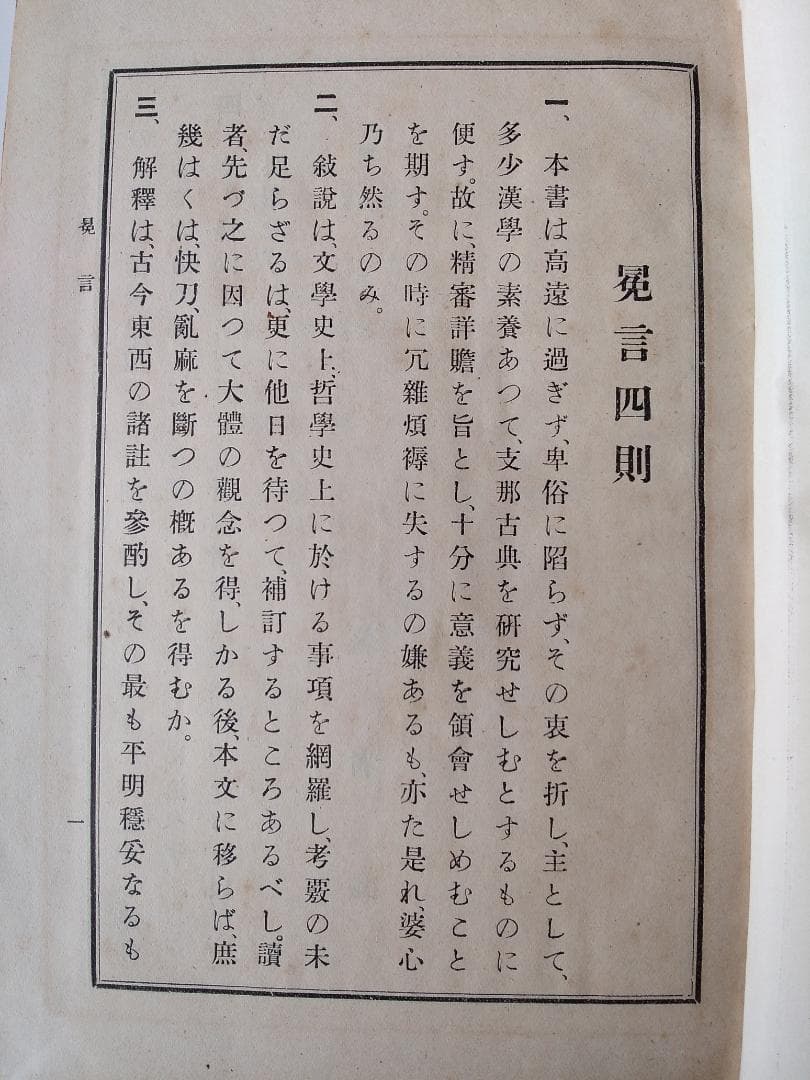 冕言四則
一、本書は高遠に過ぎず、卑俗に陷らず、その衷を折し、主として、
多少漢學の素養あつて、支那古典を硏究せしむとするものに
便す。故に、精審詳贍を旨とし、十分に意義を領會せしめむこと
を期す。その時に冗雜煩褥に失するの嫌あるも、亦た是れ、婆心
乃ち然るのみ。
二、敍說は、文學史上、哲學史上に於ける事項を網羅し、考覈の未
だ足らざるは、更に他日を待つて、補訂するところあるべし。讀
者、先づ之に因つて大體の觀念を得、しかる後、本文に移らば、庶
幾はくは、快刀、亂麻を斷つの概あるを得むか。
三、解釋は、古今東西の諸註を參酌し、その最も平明穩妥なるも
冕言
一